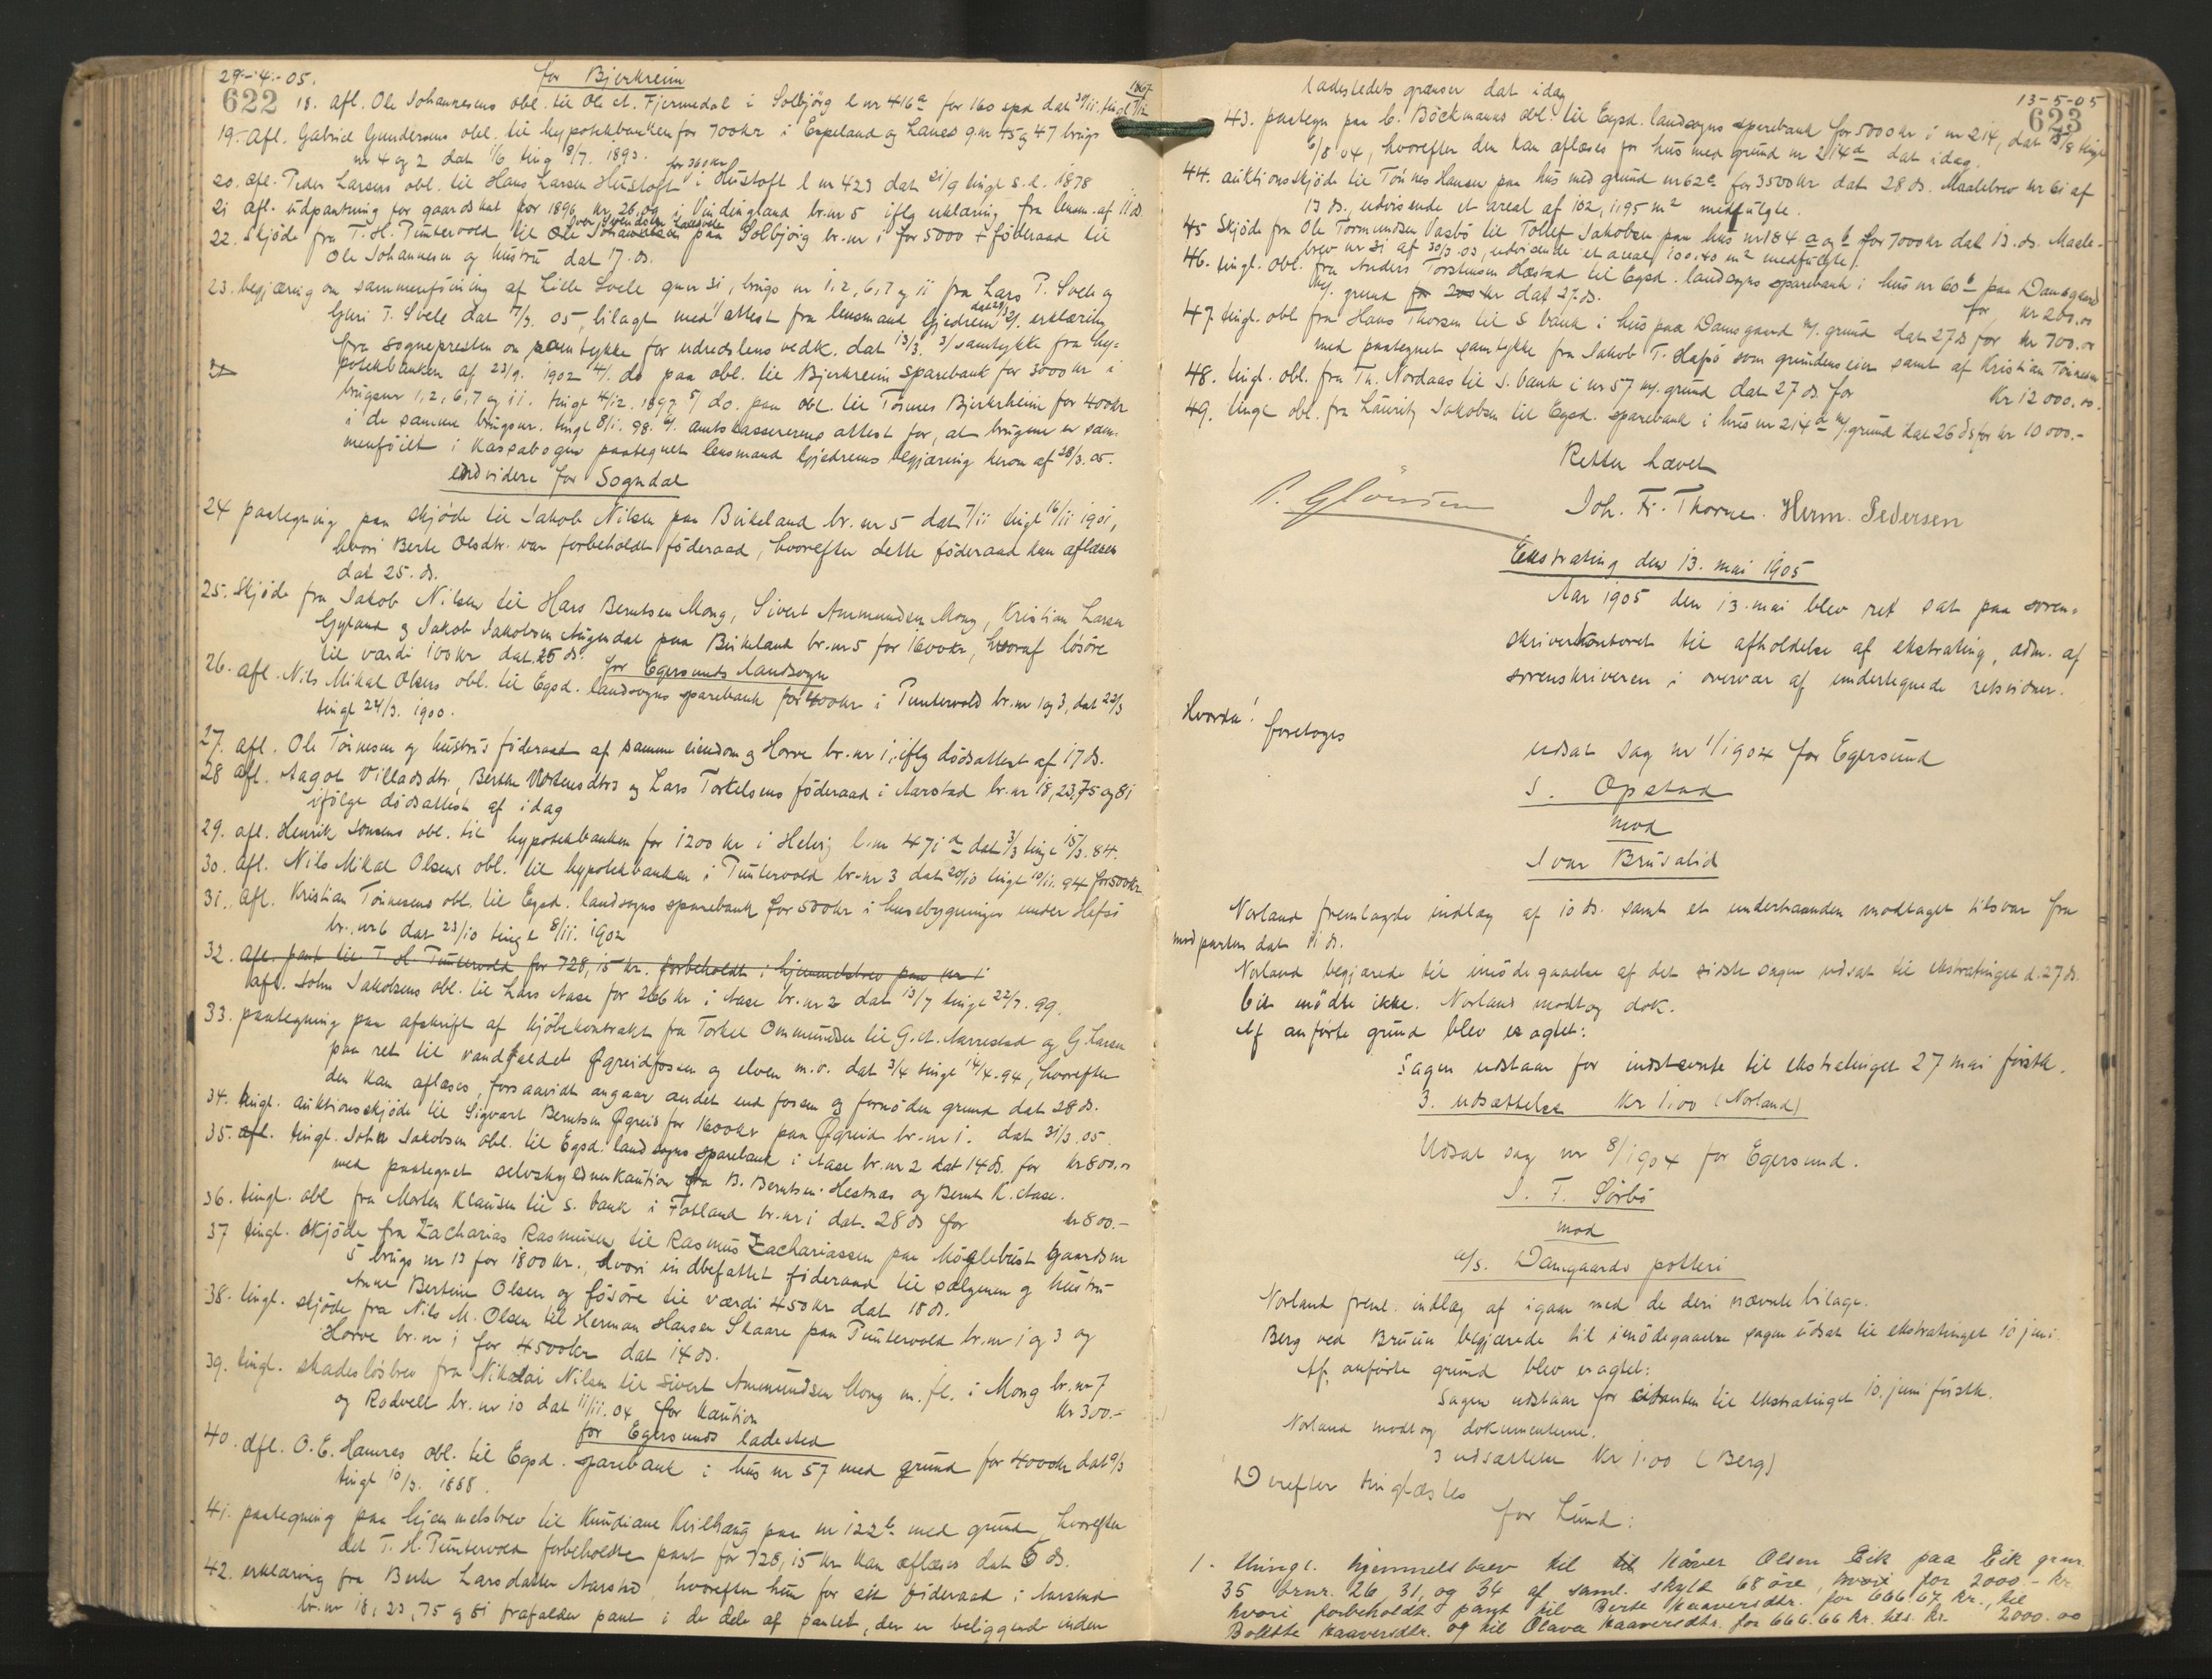 29-4-05.
for Bjerkreim
622
18. afl. Ole Johannesens obl. til Ole A. Fjermedal i Solbjörg l nr 416a for 160 spd dat 30/11 tingl 7/12 1867
19. afl. Gabriel Gundersens obl. til hypotekbanken for 700 kr i Espeland og Lauen g.nr 45 og 47 brugs
nr 4 og 2 dat 1/6 ting 8/7. 1893.
20. afl. Peder Larsens obl. til Hans Larsen Hustoft for 360 kr i Hustoft l nr 423 dat 21/9 tingl s.d. 1878
21 afl. udpantning for gaardskat for 1896 kr. 26,09 i Vindingland br.nr 5 iflg erklæring fra lensm. af 11 ds.
22. Skjöde fra T. H. Puntervold til Ole Johannesen paa Solbjörg br.nr 1 for 5000 + föderaad til
Ole Johannesen og hustru dat 17. ds.
23. begjæring om sammenföining af Lille Svele gnr 31, brugs nr 1, 2, 6, 7 og 11 fra Lars T. Svele og
Guri T. Svele dat 17/3. 05, bilagt med 1/ attest fra lensmand Gjedrem 2/. erklæring
fra sognepresten om samtykke for udredslens vedk. dat 13/3. 3/ samtykke fra hy=
potekbanken af 23/9. 1902 4/. do paa obl. til Bjerkreim sparebank for 3000 kr i
brugsnr 1, 2, 6, 7 og 11. tingl 4/12. 1897. 5/ do. paa obl. til Tönnes Bjerkrheim for 400 kr
i de samme brugsnr. tingl 8/1. 98. 6/. amtskassererens attest for, at brugene er sam-
menföiet i kassabogen paategnet lensmand Gjedrems begjæring herom af 28/3. 05.
endvidere for Sogndal
24 paategning paa skjöde til Jakob Nilsen paa Birkeland br.nr 5 dat 7/11 tingl 16/11 1901,
hvori Berte Olsdtr. var forbeholdt föderaad, hvorefter dette föderaad kan aflæses
dat 25. ds.
25. Skjöde fra Jakob Nilsen til Hans Berntsen Mong, Sivert Ammundsen Mong, Kristian Larsen
Gyland og Jakob Jakobsen Aagendal paa Birkeland br.nr 5 for 1600 kr, hvoraf lösöre
til værdi 100 kr dat. 25 ds.
for Egersunds landsogn
26. afl. Nils Mikal Olsens obl. til Egsd. landsogns sparebank for 400 kr i Puntervold br.nr 1 og 3, dat 22/3
tingl 24/3. 1900.
27. afl. Ole Tönnesen og hustrus föderaad af samme eiendom og Horve br.nr 1, iflg dödsattest af 17 ds.
28 afl. Aagot Villadsdtr, Berthe Mortensdtrs og Lars Torkelsens föderaad i Aarstad br.nr 18, 23, 75 og 81
ifölge dödsattest af idag
29. afl. Henrik Jonsens obl. til hypotekbanken for 1200 kr i Helvig l.nr 471a dat 3/3 tingl 15/3. 84.
30. afl. Nils Mikal Olsens obl. til hypotekbanken i Puntervold br.nr 3 dat 20/10 tingl 10/11. 94 for 500 kr
31. afl. Kristian Tönnesens obl. til Egsd. landsogns sparebank for 500 kr i husebygninger under Hafsö
br. nr 6 dat 23/10 tingl 8/11. 1902
32. afl. pant til T. H. Puntervold for 728,15 kr. forbeholdt i hjemmelsbrev paa nr 1
afl. John Jakobsens obl. til Lars Aase for 266 kr i Aase br.nr 2 dat 13/7 tingl 22/7. 99.
33. paategning paa afskrift af kjöbekontrakt fra Torkel Ommundsen til G. A. Aarrestad og G. Larsen
paa ret til vandfaldet Øgreidfossen og elven m.v. dat 3/4 tingl 14/4. 94, hvorefter
den kan aflæses, forsaavidt angaar andet end fossen og fornöden grund dat 28 ds.
34. tingl. auktionsskjöde til Sigvart Berntsen Øgreid for 1600 kr paa Øgreid br.nr 1. dat 31/3. 05.
35. afl. tingl. John Jakobsen obl. til Egsd. landsogns sparebank i Aase br.nr 2 dat 14 ds. for kr 800.00
med paategnet selvskyldnerkaution fra B. Berntsen Hestnæs og Bernt K. Aase.
36. tingl. obl fra Morten Klausen til s. bank i Fotland br.nr 1 dat. 28 ds for kr 800.-
37 tingl. skjöde fra Zacharias Rasmussen til Rasmus Zachariassen paa Möglebust gaardsnr
5 brugs nr 13 for 1800 kr., hvori indbefattet föderaad til sælgeren og hustru
Anne Bertine Olsen og lösöre til værdi 450 kr dat 18 ds.
38. tingl. skjöde fra Nils M. Olsen til Herman Hansen Skaare paa Puntervold br.nr 1 og 3 og
Horve br.nr 1 for 4500 kr dat 14 ds.
39. tingl. skadeslösbrev fra Nikolai Nilsen til Sivert Ammundsen Mong m. fl. i Mong br.nr 7
og Rodvelt br.nr 10 dat 11/11. 04 for kaution kr 300.-
for Egersunds ladested
40. afl. O. E. Hamres obl. til Egsd. sparebank i hus nr 57 med grund for 4000 kr dat 9/3
tingl 10/3. 1888.
41. paategning paa hjemmelsbrev til Kundiane Kvilhaug paa nr 122b med grund, hvorefter
det T. H. Puntervold forbeholdte pant for 728,15 kr kan aflæses dat 5 ds.
42. erklæring fra Berte Larsdatter Aarstad, hvorefter hun for sit föderaad i Aarstad
br.nr 18, 23, 75 og 81 frafalder pant i de dele af pantet, der er beliggende inden
ladestedets grænser dat idag
13-5-05
623
43. paategn paa C. Böckmanns obl. til Egsd. landsogns sparebank for 5000 kr i nr 214, dat tingl
6/8 04, hvorefter den kan aflæses for hus med grund nr 214d dat idag.
44. auktionsskjöde til Tönnes Hansen paa hus med grund nr 62a for 3500 kr dat 28 ds. Maalebrev nr 61 af
13 ds, udvisende et areal af 102,1195 m² medfulgte.
45 Skjöde fra Ole Tormundsen Vasbö til Tollef Jakobsen paa hus nr 184 a og b for 7000 kr dat 13. ds. Maale-
brev nr 31 af 30/3-03, udvisende et areal 100,40 m² medfulgte.
46. tingl. obl. fra Anders Torstensen Hæstad til Egsd. landsogns sparebank i hus nr 60b paa Damsgaard
m/. grund for 200 kr dat 27. ds. for kr 200.00
47. tingl. obl fra Hans Thorsen til s. bank i hus paa Damsgaard m/. grund dat 27 ds for kr 700.00
med paategnet samtykke fra Jakob T. Hafsö som grundens eier samt af Kristian Tönnesen
48. tingl. obl. fra Th. Nordaas til s. bank i nr 57 m/. grund dat 27 ds. for kr 12000.00.
49. tingl. obl. fra Lauritz Jakobsen til Egsd. sparebank i hus nr 214d m/. grund dat 26 ds for kr 10000.-
Retten hævet
Joh. Fr. Thorne. Herm. Pedersen
Ekstrating den 13. mai 1905
Aar 1905 den 13. mai blev ret sat paa soren-
skriverkontoret til afholdelse af ekstrating, adm. af
sorenskriveren i overvær af undertegnede retsvidner.
Hvorda!
foretoges
udsat sag nr 1/1904 for Egersund
S. Opstad
mod
Ivar Brusalid
Norland fremlagde indlæg af 10 ds. samt et underhaanden modtaget tilsvar fra
modparten dat 11 ds.
Norland begjærede til imödegaaelse af det sidste sagen udsat til ekstratinget d. 27 ds.
Cit mödte ikke. Norland modtog dok.
Af anförte grund blev eragtet:
Sagen udstaar for indstevnte til ekstratinget 27 mai förstk.
3. udsættelse kr 1.00 (Norland)
Udsat sag nr 8/1904 for Egersund.
J. T. Sörbö
mod
a/s. Damgaards potteri
Norland freml. indlæg af igaar med de deri nævnte bilage.
Berg ved Bruun begjærede til imödegaaelse sagen udsat til ekstratinget 10 juni.
Af anförte grund blev eragtet:
Sagen udstaar for citanten til ekstratinget 10. juni förstk.
Norland modtog dokumenterne.
3 udsættelse kr 1.00 (Berg)
Derefter tinglæstes
for Lund:
1. thingl. hjemmelsbrev til til Kåver Olsen Eik paa Eik gnr.
35 brnr. 26, 31, og 34 af saml. skyld 68 öre, hvori for 2000,- kr.
hvori forbeholdt pant til Berte Kaaversdtr. for 666.67 kr., til
Bolette Kaaversdtr. og til Olava Kaaversdtr. for 666.66 kr. tils. kr. 2000.00